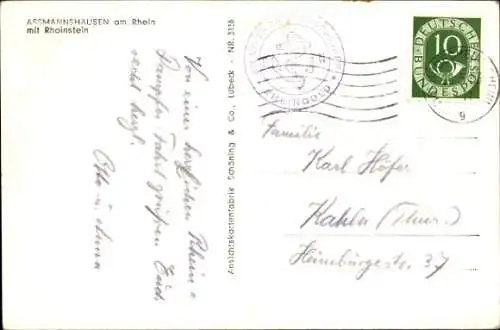 ASSMANNSHAUSEN am Rhein
mit Rheinstein
Von einer herzlichen Rhein-
Dampfer Fahrt grüßen Euch
recht herzl.
Otto u. Anna
Ansichtskartenfabrik Schöning & Co., Lübeck - NR. 3158
RHEINGOLD
DEUTSCHE
BUNDESPOST
10
9
Familie
Karl Höfer
Kahla (Thür.)
Heimbürgestr. 37